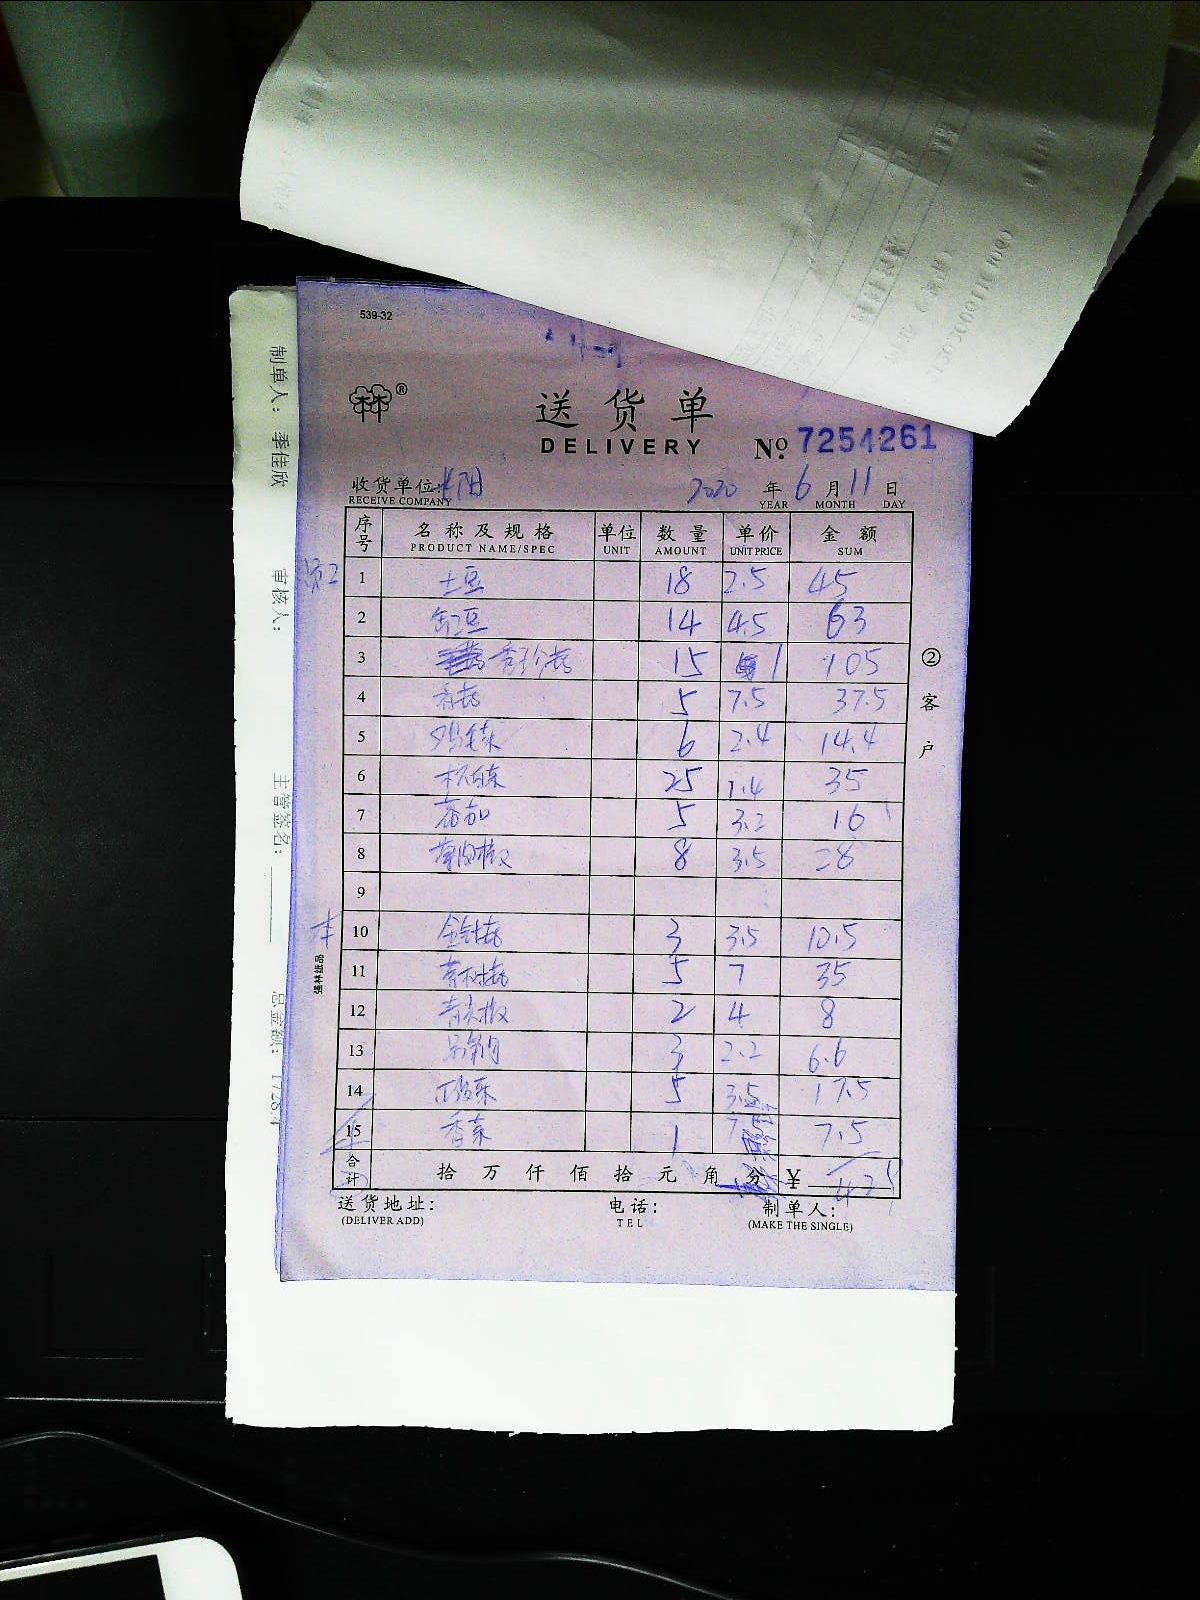 539-32
送货单
DELIVERY
№ 7254261
收货单位:
RECEIVE COMPANY
2020 年 6 月 11 日
YEAR MONTH DAY
序号 名称及规格 单位 数量 单价 金额
PRODUCT NAME/SPEC UNIT AMOUNT UNIT PRICE SUM
员工 1 土豆 18 2.5 45
2 缸豆 14 4.5 63
3 秀珍菇 15 105
4 香菇 5 7.5 37.5
5 鸡毛菜 6 2.4 14.4
6 杭白菜 25 1.4 35
7 番茄 5 3.2 16
8 8 3.5 28
9
10 金针菇 3 3.5 10.5
11 茶树菇 5 7 35
12 2 4 8
13 3 2.2 6.6
14 5 3.5 17.5
15 香菜 1 7.5 7.5
合计 拾 万 仟 佰 拾 元 角 分 ¥
送货地址: 电话: 制单人:
(DELIVER ADD) TEL (MAKE THE SINGLE)
②客户
强林纸品
制单人: 季佳欣
审核人:
主管签名:
总金额: 1728.4